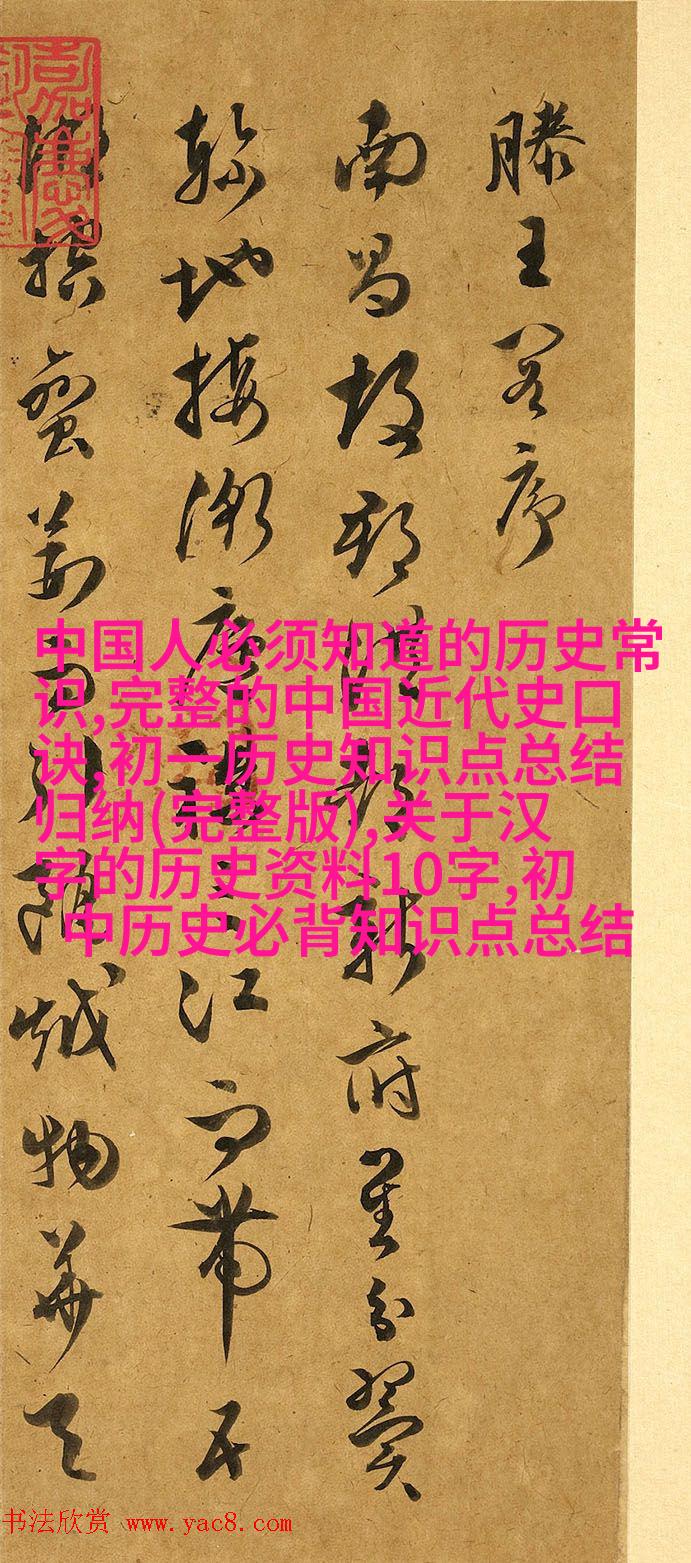 滕王閣序
南昌故郡洪都新府星分翼
軫地接衡廬襟三江而帶五
湖控蠻荊而引甌越物華天
中国人必须知道的历史常
识,完整的中国近代史口
诀,初一历史知识点总结
归纳(完整版),关于汉
字的历史资料10字,初
中历史必背知识点总结
书法欣赏 www.yac8.com